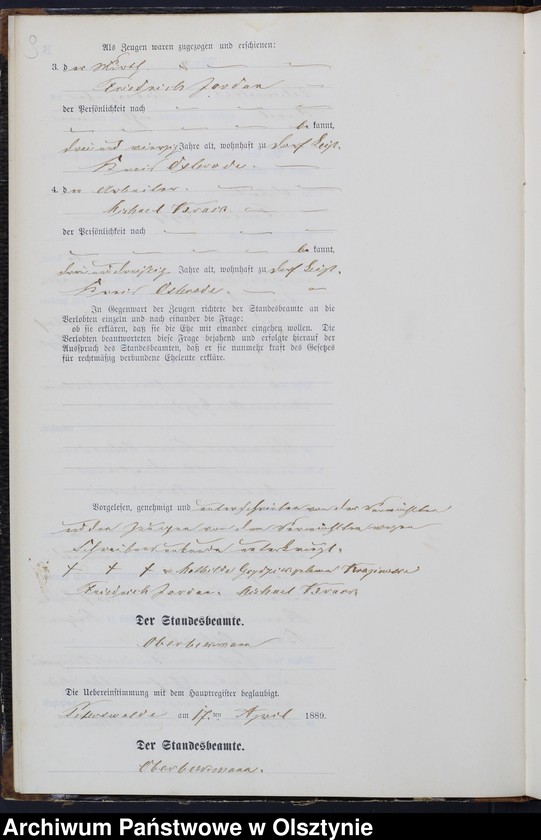 Als Zeugen waren zugezogen und erschienen:
3. der Wirth
Friedrich Jordan
der Persönlichkeit nach
be kannt,
drei und vierzig Jahre alt, wohnhaft zu Dorf
Kreis Osterode.
4. der Arbeiter.
Michael
der Persönlichkeit nach
be kannt,
drei und dreißig Jahre alt, wohnhaft zu Dorf
Kreis Osterode.
In Gegenwart der Zeugen richtete der Standesbeamte an die
Verlobten einzeln und nach einander die Frage:
ob sie erklären, daß sie die Ehe mit einander eingehen wollen. Die
Verlobten beantworteten diese Frage bejahend und erfolgte hierauf der
Ausspruch des Standesbeamten, daß er sie nunmehr kraft des Gesetzes
für rechtmäßig verbundene Eheleute erkläre.
Vorgelesen, genehmigt und unterschrieben von der Vermählten
und den Zeugen von dem Vermählten wegen
Schreibensunkunde unterkreuzt.
+ + + Mathilde geborene
Friedrich Jordan. Michael
Der Standesbeamte.
Die Uebereinstimmung mit dem Hauptregister beglaubigt.
am 17. ten April 1889.
Der Standesbeamte.
Archiwum Państwowe w Olsztynie